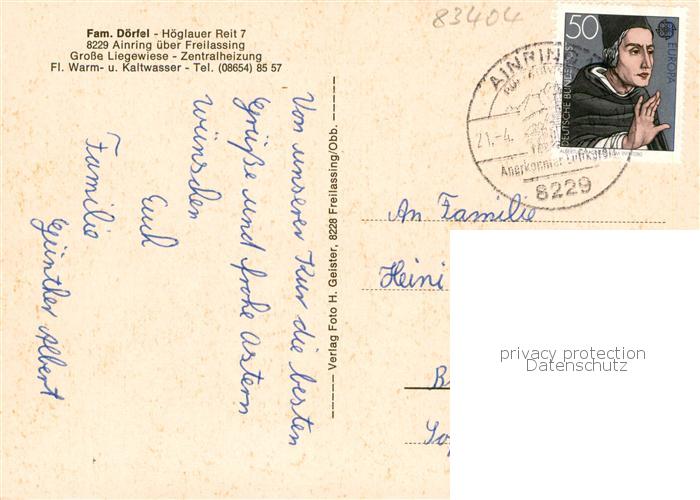 83404
Fam. Dörfel - Höglauer Reit 7
8229 Ainring über Freilassing
Große Liegewiese - Zentralheizung
Fl. Warm- u. Kaltwasser - Tel. (08654) 85 57
Von unserer Kur die besten
Grüße und frohe Ostern
wünschen
Euch
Familie
Günther Albert
Verlag Foto H. Geister, 8228 Freilassing/Obb.
50
DEUTSCHE BUNDESPOST
EUROPA
AINRING
21.-4.
Anerkannter Luftkurort
8229
An Familie
Heini
privacy protection
Datenschutz